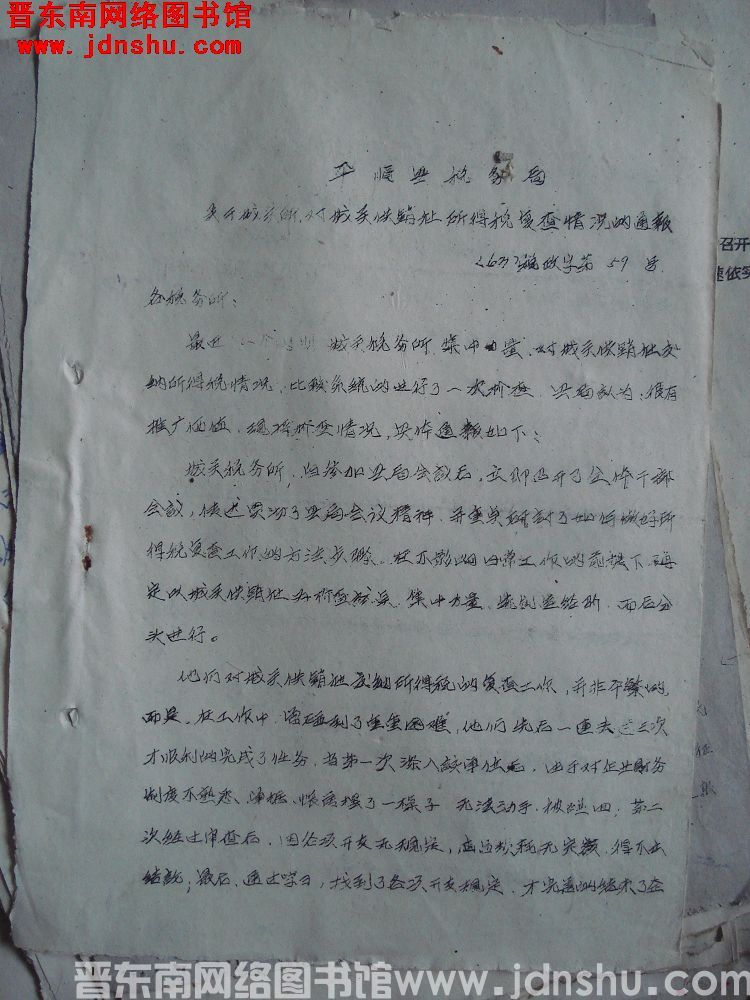 晋东南网络图书馆
www.jdnshu.com
平顺县税务局
关于城关所对城关供销社所得税复查情况的通报
(63)税政字第59号
召开
速依实
各税务所:
最近 城关税务所集中力量,对城关供销社交
纳所得税情况,比较系统的进行了一次检查,县局认为:很有
推广价值,现将检查情况,具体通报如下:
城关税务所,自参加县局会议后,立即召开了全体干部
会议,传达贯彻了县局会议精神,并重点研讨了如何做好所
得税复查工作的方法步骤,在不影响日常工作的前提下,确
定以城关供销社为检查对象,集中力量,先创造经验,而后分
头进行。
他们对城关供销社交纳所得税的复查工作,并非平繁的,
而是,在工作中,曾碰到了重重困难,他们先后一连去过三次
才顺利的完成了任务,当第一次深入该单位后,由于对企业财务
制度不熟悉,账摆了一桌子,无法动手,被迫回;第二
次经过审查后,因各项开支无规定,无定额,得不出
结论;最后,通过学习,找到了各项开支规定,才完满的结束了全
晋东南网络图书馆www.jdnshu.com